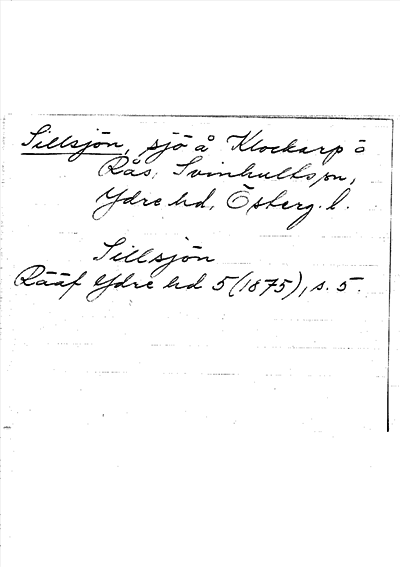 Sillsjön, sjö å Klockarp ö
Rås, Svinhults sn,
Ydre hd, Österg. l.
Sillsjön
Rääf Ydre hd 5 (1875), s. 5.